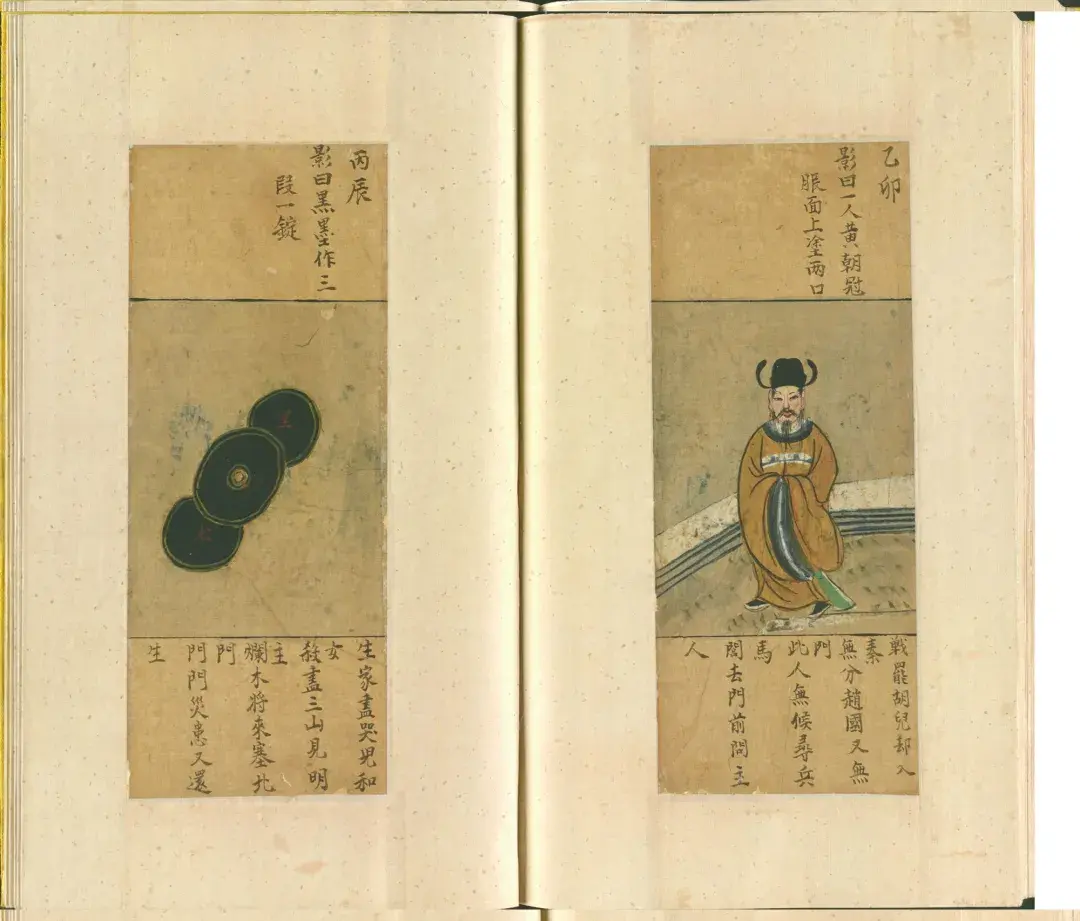 乙卯
影曰一人黄朝冠
服面上塗两口
戰罷胡兒却入
秦
無分趙國又無
門
此人無候尋兵
馬
閣去門前問主
人
丙辰
影曰黑墨作三
段一錠
生家盡哭兒和
女
殺盡三山見明
主
爛木將來塞北
門
門門災患又還
生